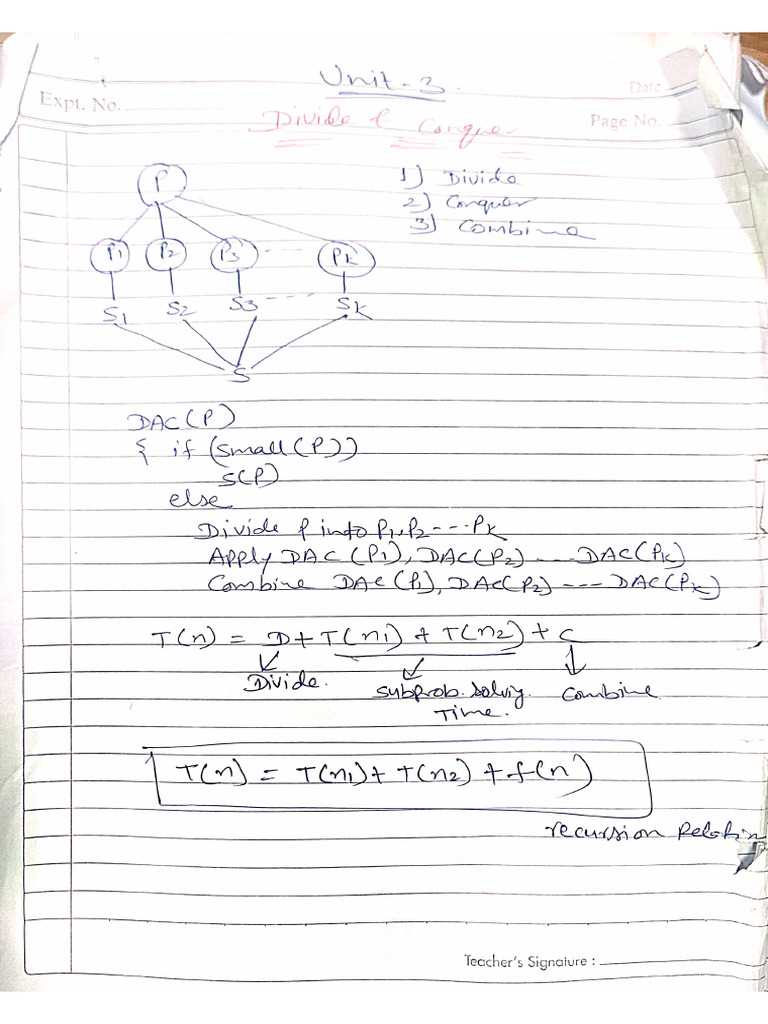 Unit-3
Expt. No.
Date
Divide & Conquer
Page No.
1) Divide
2) Conquer
3) Combine
P
P1 P2 P3 --- PK
S1 S2 S3 --- SK
S
DAC(P)
{ if (small(P))
S(P)
else
Divide P into P1, P2 ---- PK
Apply DAC(P1), DAC(P2) ---- DAC(PK)
Combine DAC(P1), DAC(P2) ---- DAC(PK)
T(n) = D + T(n1) + T(n2) + C
Divide. subprob. solvig. Combine
Time.
T(n) = T(n1) + T(n2) + f(n)
recursion Relation
Teacher's Signature :